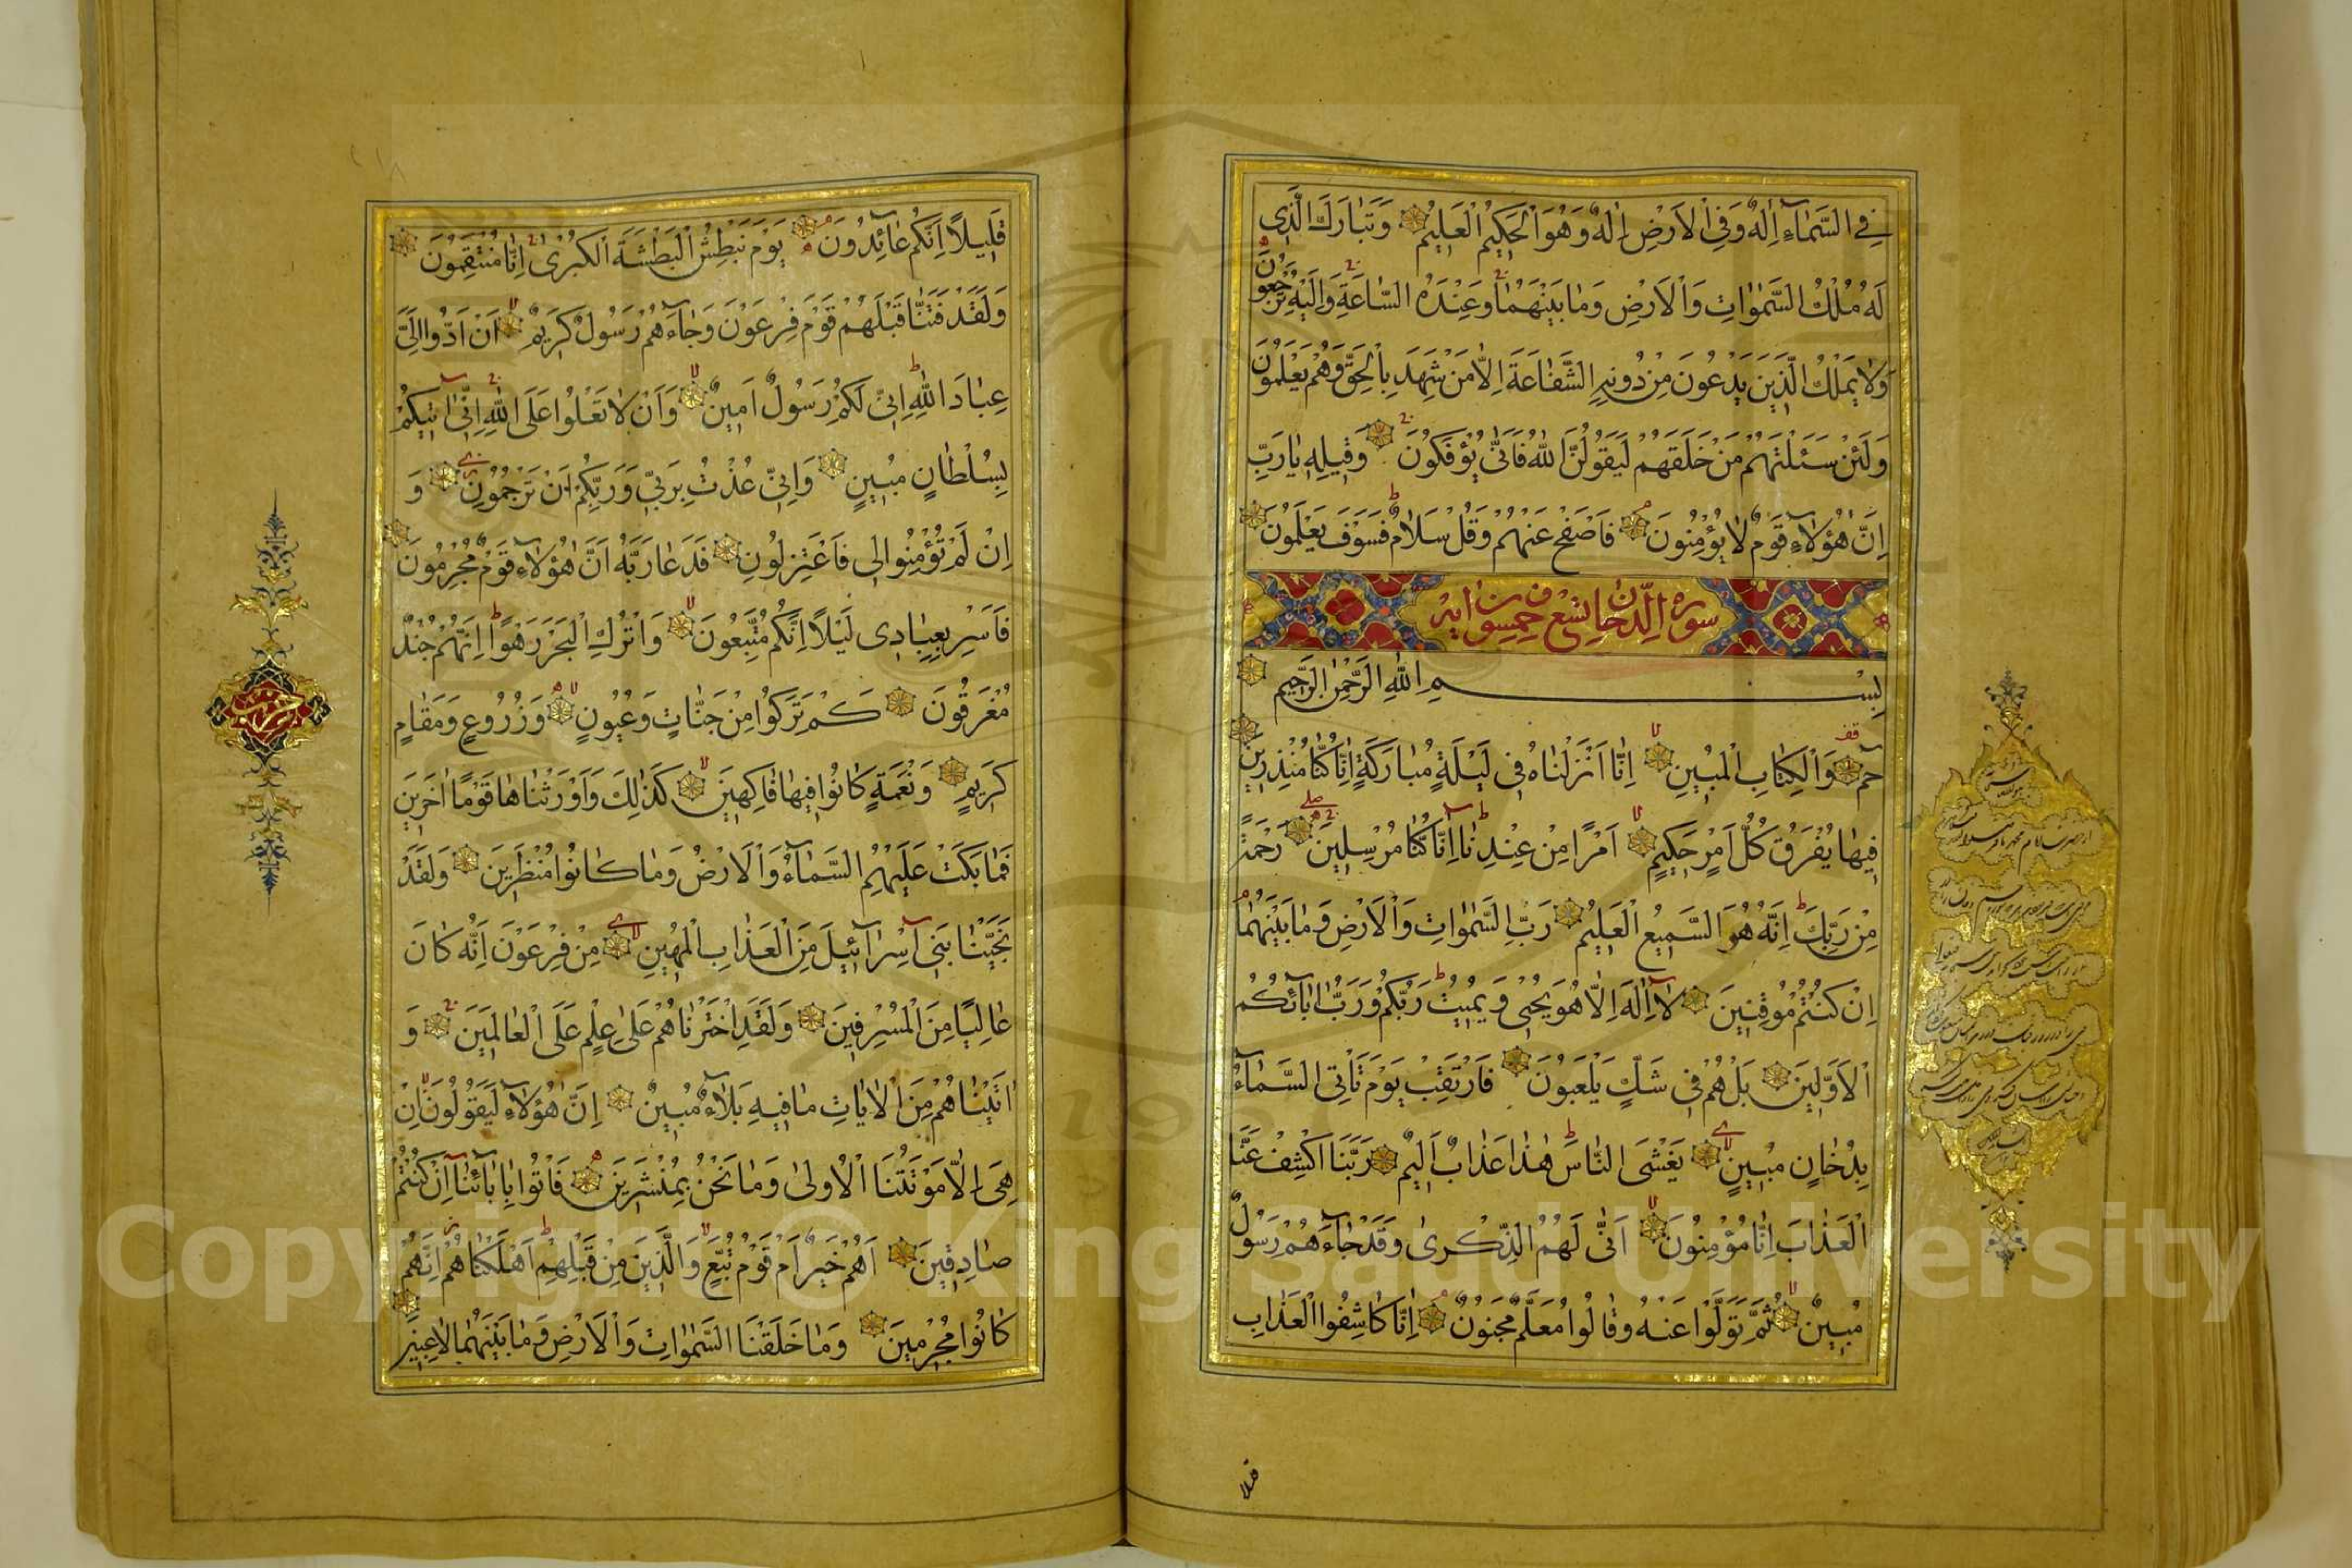 فِي السَّمَاءِ اِلٰهٌ وَفِي الْاَرْضِ اِلٰهٌ وَهُوَ الْحَكِيمُ الْعَلِيمُ وَتَبَارَكَ الَّذِى
لَهُ مُلْكُ السَّمٰوَاتِ وَالْاَرْضِ وَمَا بَيْنَهُمَا وَعِنْدَهُ السَّاعَةِ وَاِلَيْهِ تُرْجَعُونَ
وَلَا يَمْلِكُ الَّذِينَ يَدْعُونَ مِنْ دُونِهِ الشَّفَاعَةَ اِلَّا مَنْ شَهِدَ بِالْحَقِّ وَهُمْ يَعْلَمُونَ
وَلَئِنْ سَئَلْتَهُمْ مَنْ خَلَقَهُمْ لَيَقُولُنَّ اللهُ فَاَنّٰى يُؤْفَكُونَ وَقِيلِهِ يَارَبِّ
اِنَّ هٰؤُلَاءِ قَوْمٌ لَا يُؤْمِنُونَ فَاصْفَحْ عَنْهُمْ وَقُلْ سَلَامٌ فَسَوْفَ يَعْلَمُونَ
سورة الدخان تسع خمسون اية
بِسْمِ اللهِ الرَّحْمٰنِ الرَّحِيمِ
حٰم وَالْكِتَابِ الْمُبِينِ اِنَّا اَنْزَلْنَاهُ فِى لَيْلَةٍ مُبَارَكَةٍ اِنَّا كُنَّا مُنْذِرِينَ
فِيهَا يُفْرَقُ كُلُّ اَمْرٍ حَكِيمٍ اَمْرًا مِنْ عِنْدِنَا اِنَّا كُنَّا مُرْسِلِينَ رَحْمَةً
مِنْ رَبِّكَ اِنَّهُ هُوَ السَّمِيعُ الْعَلِيمُ رَبِّ السَّمٰوَاتِ وَالْاَرْضِ وَمَا بَيْنَهُمَا
اِنْ كُنْتُمْ مُوقِنِينَ لَا اِلٰهَ اِلَّا هُوَ يُحْيِى وَيُمِيتُ رَبُّكُمْ وَرَبُّ اٰبَائِكُمُ
الْاَوَّلِينَ بَلْ هُمْ فِى شَكٍّ يَلْعَبُونَ فَارْتَقِبْ يَوْمَ تَأْتِى السَّمَاءُ
بِدُخَانٍ مُبِينٍ يَغْشَى النَّاسَ هٰذَا عَذَابٌ اَلِيمٌ رَبَّنَا اكْشِفْ عَنَّا
الْعَذَابَ اِنَّا مُؤْمِنُونَ اَنّٰى لَهُمُ الذِّكْرٰى وَقَدْ جَاءَهُمْ رَسُولٌ
مُبِينٌ ثُمَّ تَوَلَّوْا عَنْهُ وَقَالُوا مُعَلَّمٌ مَجْنُونٌ اِنَّا كَاشِفُوا الْعَذَابِ
قَلِيلًا اِنَّكُمْ عَائِدُونَ يَوْمَ نَبْطِشُ الْبَطْشَةَ الْكُبْرٰى اِنَّا مُنْتَقِمُونَ
وَلَقَدْ فَتَنَّا قَبْلَهُمْ قَوْمَ فِرْعَوْنَ وَجَاءَهُمْ رَسُولٌ كَرِيمٌ اَنْ اَدُّوا اِلَىَّ
عِبَادَ اللهِ اِنِّى لَكُمْ رَسُولٌ اَمِينٌ وَاَنْ لَا تَعْلُوا عَلَى اللهِ اِنِّى اٰتِيكُمْ
بِسُلْطَانٍ مُبِينٍ وَاِنِّى عُذْتُ بِرَبِّى وَرَبِّكُمْ اَنْ تَرْجُمُونِ وَ
اِنْ لَمْ تُؤْمِنُوا لِى فَاعْتَزِلُونِ فَدَعَا رَبَّهُ اَنَّ هٰؤُلَاءِ قَوْمٌ مُجْرِمُونَ
فَاَسْرِ بِعِبَادِى لَيْلًا اِنَّكُمْ مُتَّبَعُونَ وَاتْرُكِ الْبَحْرَ رَهْوًا اِنَّهُمْ جُنْدٌ
مُغْرَقُونَ كَمْ تَرَكُوا مِنْ جَنَّاتٍ وَعُيُونٍ وَزُرُوعٍ وَمَقَامٍ
كَرِيمٍ وَنَعْمَةٍ كَانُوا فِيهَا فَاكِهِينَ كَذٰلِكَ وَاَوْرَثْنَاهَا قَوْمًا اٰخَرِينَ
فَمَا بَكَتْ عَلَيْهِمُ السَّمَاءُ وَالْاَرْضُ وَمَا كَانُوا مُنْظَرِينَ وَلَقَدْ
نَجَّيْنَا بَنِى اِسْرَائِيلَ مِنَ الْعَذَابِ الْمُهِينِ مِنْ فِرْعَوْنَ اِنَّهُ كَانَ
عَالِيًا مِنَ الْمُسْرِفِينَ وَلَقَدِ اخْتَرْنَاهُمْ عَلٰى عِلْمٍ عَلَى الْعَالَمِينَ وَ
اٰتَيْنَاهُمْ مِنَ الْاٰيَاتِ مَا فِيهِ بَلَاءٌ مُبِينٌ اِنَّ هٰؤُلَاءِ لَيَقُولُونَ اِنْ
هِىَ اِلَّا مَوْتَتُنَا الْاُولٰى وَمَا نَحْنُ بِمُنْشَرِينَ فَأْتُوا بِاٰبَائِنَا اِنْ كُنْتُمْ
صَادِقِينَ اَهُمْ خَيْرٌ اَمْ قَوْمُ تُبَّعٍ وَالَّذِينَ مِنْ قَبْلِهِمْ اَهْلَكْنَاهُمْ اِنَّهُمْ
كَانُوا مُجْرِمِينَ وَمَا خَلَقْنَا السَّمٰوَاتِ وَالْاَرْضَ وَمَا بَيْنَهُمَا لَاعِبِينَ
Copyright © King Saud University